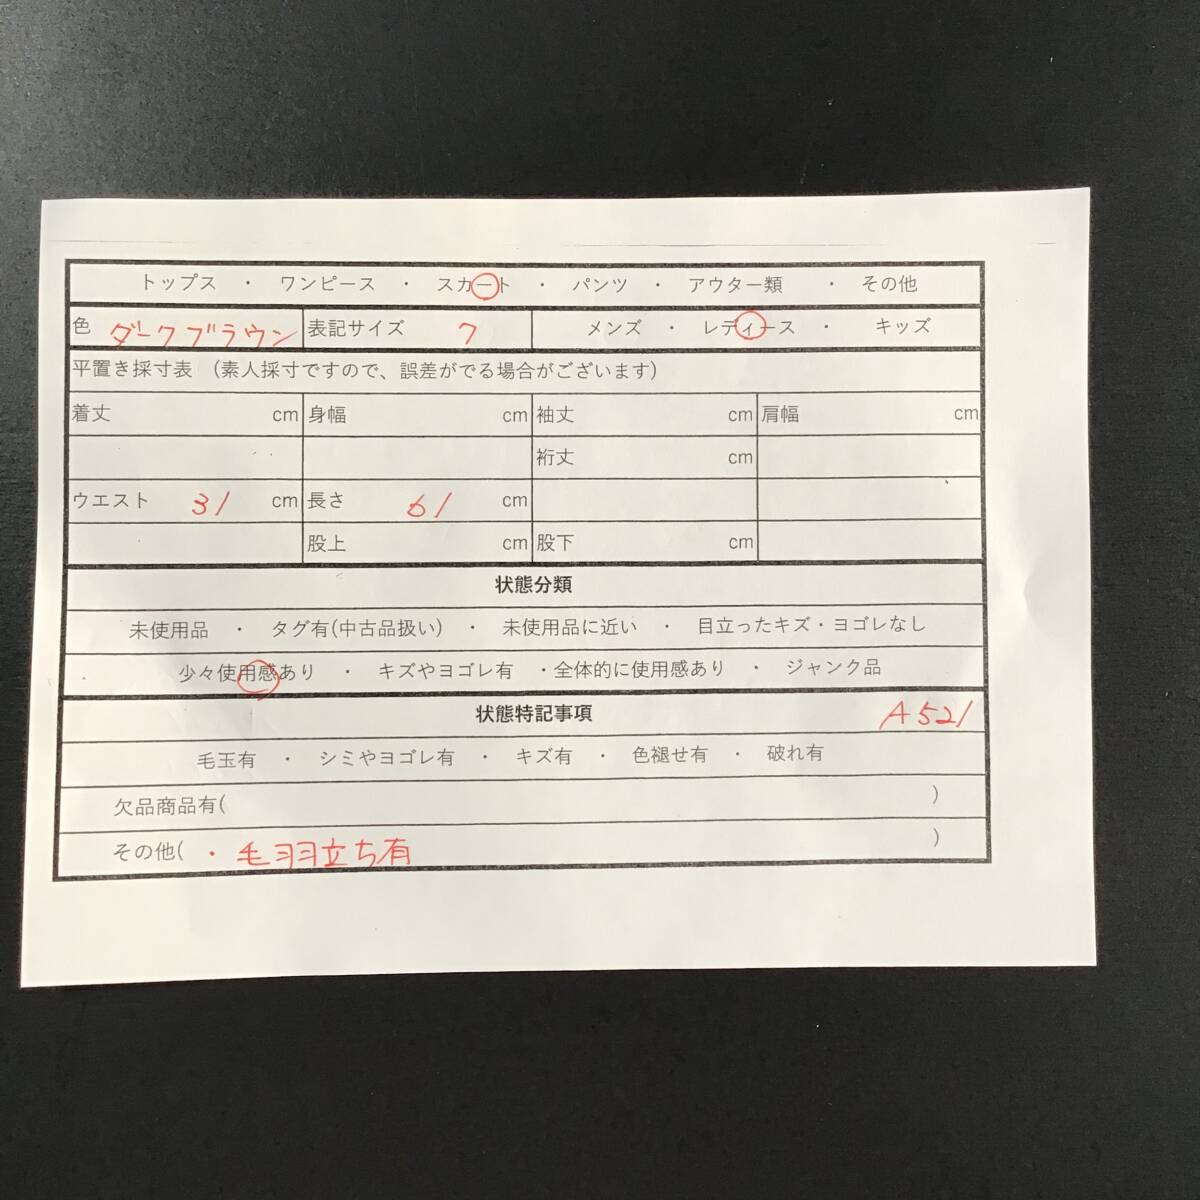 トップス ・ ワンピース ・ スカート ・ パンツ ・ アウター類 ・ その他
色 ダークブラウン 表記サイズ 7 メンズ ・ レディース ・ キッズ
平置き採寸表 (素人採寸ですので、誤差がでる場合がございます)
着丈 cm 身幅 cm 袖丈 cm 肩幅 cm
裄丈 cm
ウエスト 31 cm 長さ 61 cm
股上 cm 股下 cm
状態分類
未使用品 ・ タグ有(中古品扱い) ・ 未使用品に近い ・ 目立ったキズ・ヨゴレなし
少々使用感あり ・ キズやヨゴレ有 ・全体的に使用感あり ・ ジャンク品
状態特記事項 A521
毛玉有 ・ シミやヨゴレ有 ・ キズ有 ・ 色褪せ有 ・ 破れ有
欠品商品有( )
その他( ・毛羽立ち有 )